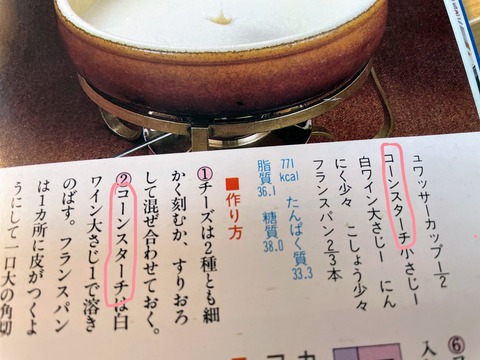 ュワッサーカップ1/2
コーンスターチ小さじ一
白ワイン大さじ一 にん
にく少々 こしょう少々
フランスパン2/3本
771kcal たんぱく質33.3
脂質36.1 糖質38.0
■作り方
①チーズは2種とも細
かく刻むか、すりおろ
して混ぜ合わせておく。
②コーンスターチは白
ワイン大さじ1で溶き
のばす。フランスパン
は1カ所に皮がつくよ
うにして一口大の角切
⑥